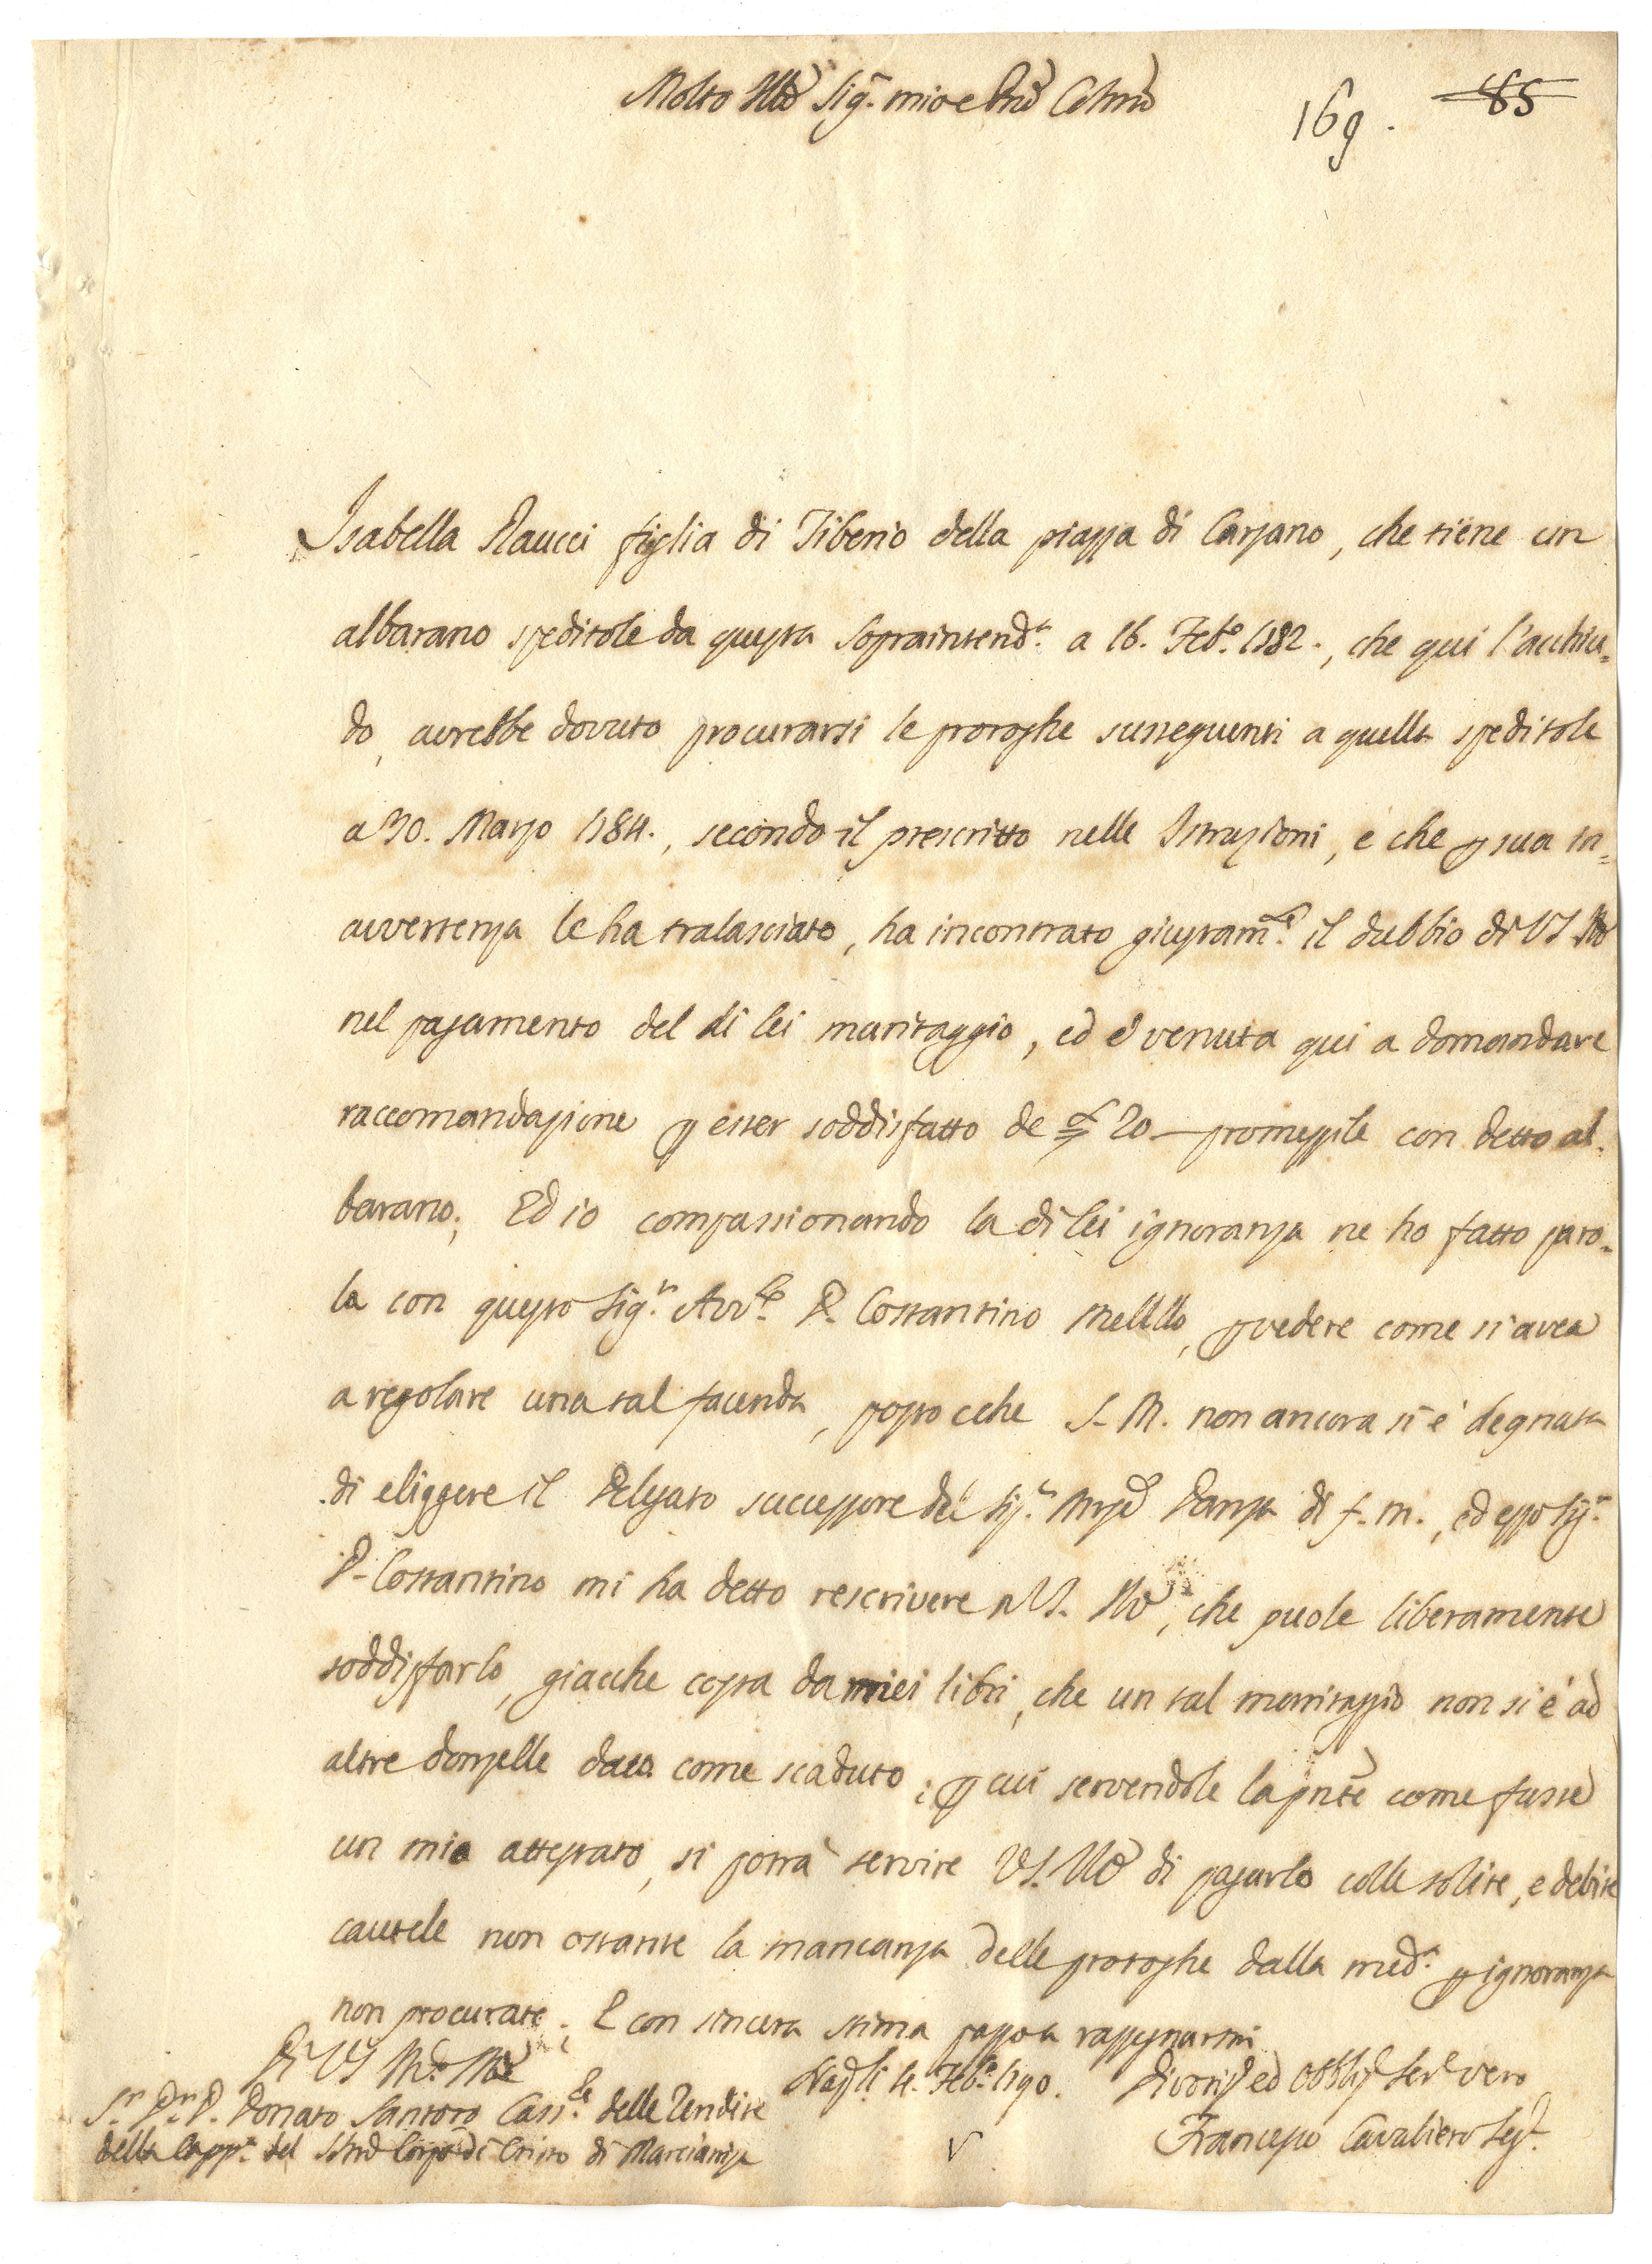 Molto Ill.e Sig.r mio e Pne Colmo
169. 85
Isabella Raucci figlia di Tiberio della piazza di Carzano, che tiene un
albarano speditole da questa Sopraintend.a a 16. Feb.o 1782., che qui l'acchiu=
do, avrebbe dovuto procurarsi le proroghe susseguenti a quella speditole
a 30. Marzo 1784., secondo il prescritto nelle Istruzioni, e che p sua in=
avvertenza le ha tralasciato, ha incontrato giustam.te il dubbio di VS Ill.e
nel pagamento del di lei maritaggio, ed è venuta qui a domandare
raccomandazione p esser soddisfatto de 20 — promessile con detto al=
barano; Ed io compassionando la di lei ignoranza ne ho fatto paro=
la con questo Sig.r Avv.to D. Costantino Melillo, p vedere come si avea
a regolare una tal facenda, posto cche S. M. non ancora si è degnata
di eliggere il Delegato successore del Sig.r March.e Danza di f. m., ed esso Sig.r
D. Costantino mi ha detto rescrivere a VS. Ill.e, che puole liberamente
soddisfarlo, giacche costa da miei libri, che un tal maritaggio non si è ad
altre donzelle dato come scaduto; p cui servendole la pnte come fusse
un mio attestato, si potrà servire VS. Ill.e di pagarlo colle solite, e debite
cautele non ostante la mancanza delle proroghe dalla med.a p ignoranza
non procurate; E con sincera stima passo a rassegnarmi
Di VS M.o Ill.e
Napoli 4. Feb.o 1790. Divotis.o ed Obblig.o Ser.e vero
S.r D.r D. Donato Santoro Cass.re delle Rendite
Francesco Cavaliero Seg.o
della Capp.a del SSmo Corpo di Cristo di Marcianise